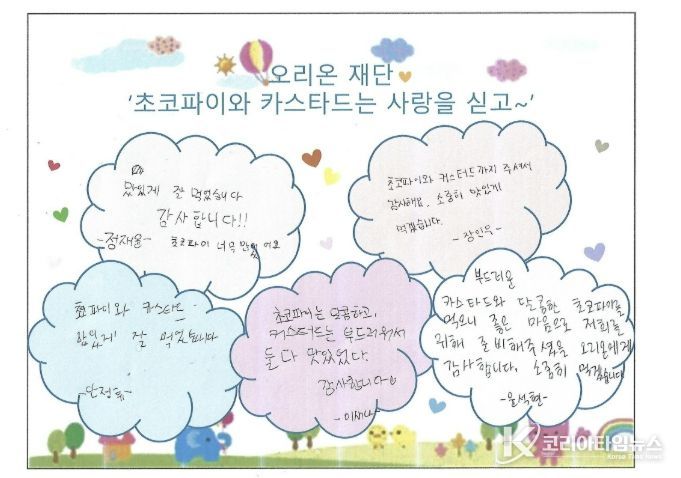 오리온 재단
'초코파이와 카스타드는 사랑을 싣고~'
맛있게 잘 먹었습니다
감사합니다!!
-정재율- 초코파이 너무 맛있어요
초코파이와 커스터드까지 주셔서
감사해요. 소중히 맛있게
먹겠습니다.
-장인우-
초코파이와 카스타드
맛있게 잘 먹었습니다
초코파이는 달콤하고,
커스터드는 부드러워서
둘 다 맛있었다.
감사합니다
부드러운
카스타드와 달콤한 초코파이를
먹으니 좋은 마음으로 저희를
위해 준비해주셨을 오리온에게
감사합니다. 소중히 먹겠습니다
-윤석현-
코리아타임뉴스
Korea Time News